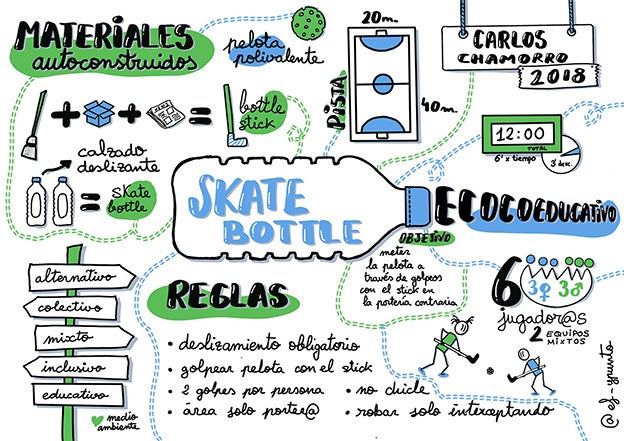 MATERIALES
autoconstruidos
pelota
polivalente
20m.
PISTA
40m.
CARLOS
CHAMORRO
2018
bottle
stick
calzado
deslizante
skate
bottle
12:00
TOTAL
6' x tiempo
3' desc.
SKATE
BOTTLE
ECOCOEDUCATIVO
OBJETIVO
meter
la pelota a
través de golpeos
con el stick en
la portería contraria
6
3♀ 3♂
jugador@s
2 EQUIPOS
MIXTOS
REGLAS
• deslizamiento obligatorio
• golpear pelota con el stick
• 2 golpes por persona
• área solo porter@
• no chicle
• robar solo interceptando
alternativo
colectivo
mixto
inclusivo
educativo
medio
ambiente
@ef-ypunto